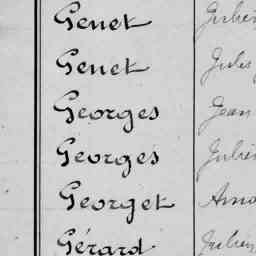 Genet Julien
Genet Jules
Georges Jean
Georges Julien
Georget
Gérard Julien